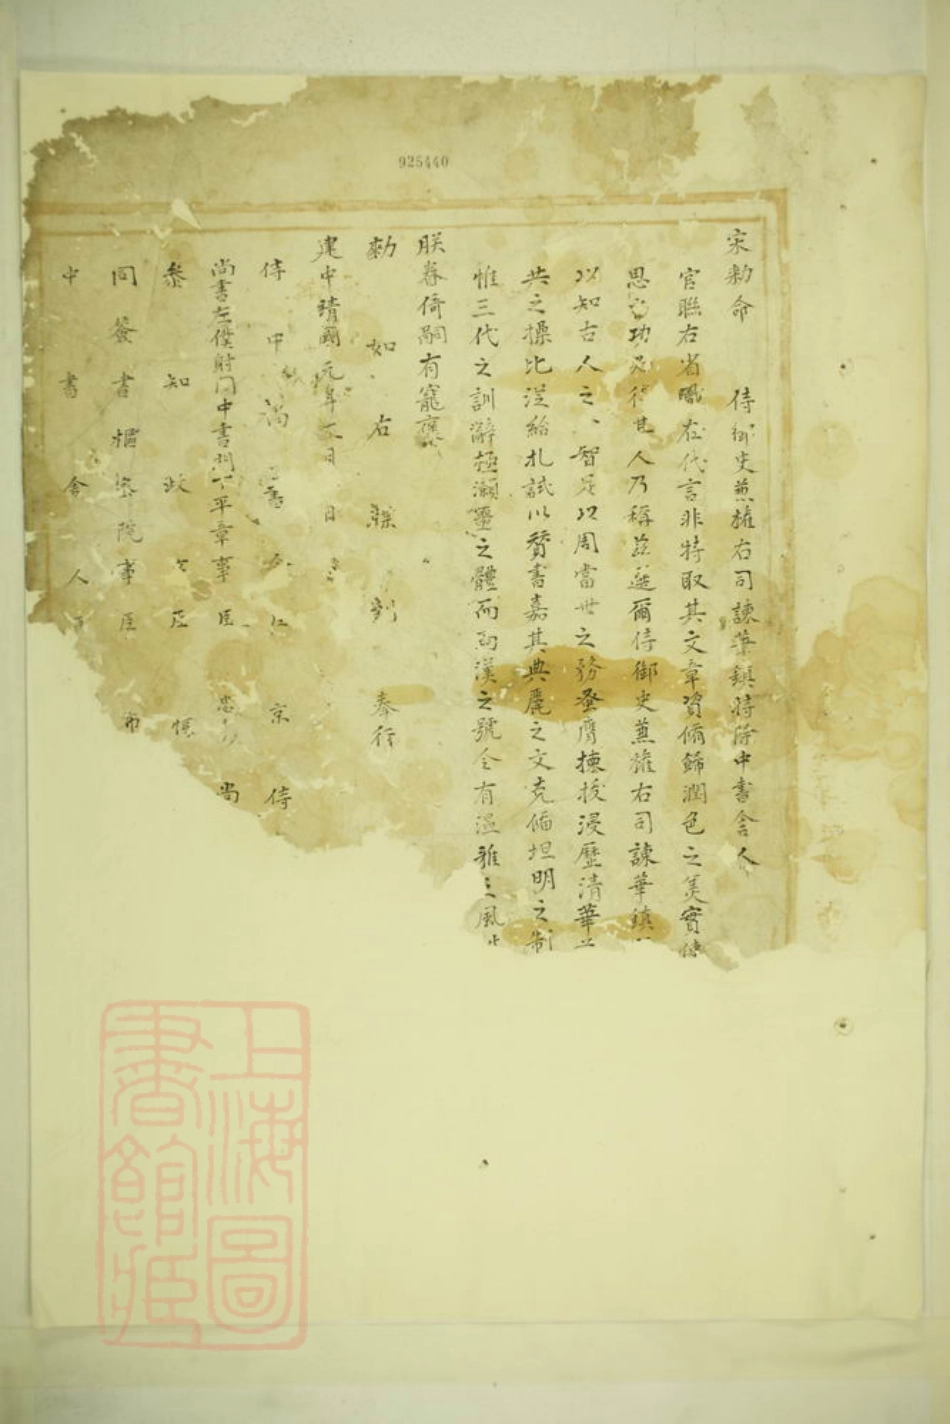 925440
宋勅命 侍御史兼權右司諫葉鎮特除中書舍人
官聯右省職在代言非特取其文章資脩飾潤色之美實
思 功 得其人乃稱茲選爾侍御史兼權右司諫華鎮
以知古人之智足以周當世之務登膺揀拔浸歷清華
共之操比從給札試以贊書嘉其典麗之文克脩坦明之制
惟三代之訓辭極灝噩之體而兩漢之號令有溫雅之風
朕眷倚嗣有寵褒
勅如右牒到奉行
建中靖國元年 日
侍中 書令 京 侍
尚書左僕射同中書門下平章事臣忠 尚
參知政 臣
同簽書樞密院事臣
中書舍人
上海圖
書館藏